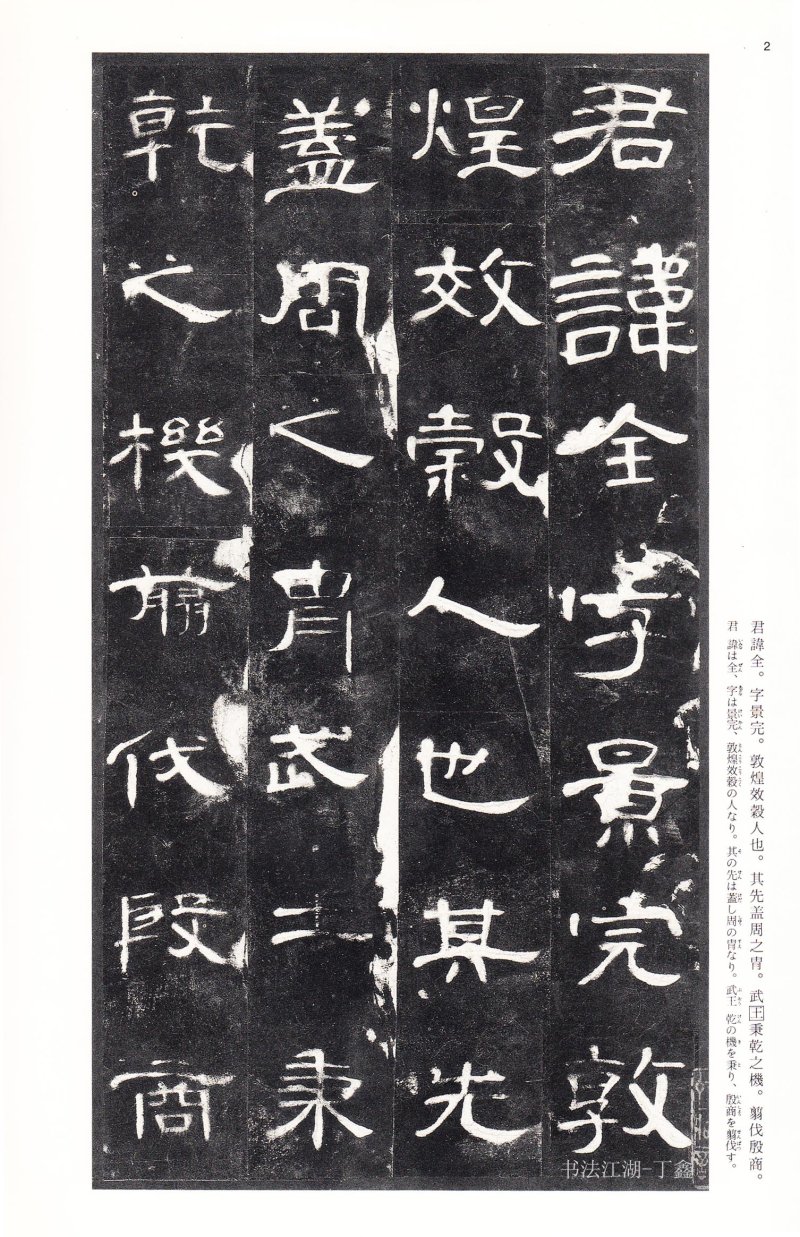 2
君諱全字景完敦
煌效穀人也其先
蓋周之胄武王秉
乾之機翦伐殷商
君諱全。字景完。敦煌效穀人也。其先盖周之胄。武王秉乾之機。翦伐殷商。
君 諱は全、字は景完、敦煌效穀の人なり。其の先は蓋し周の胄なり。武王 乾の機を秉り、殷商を翦伐す。
书法江湖-丁鑫